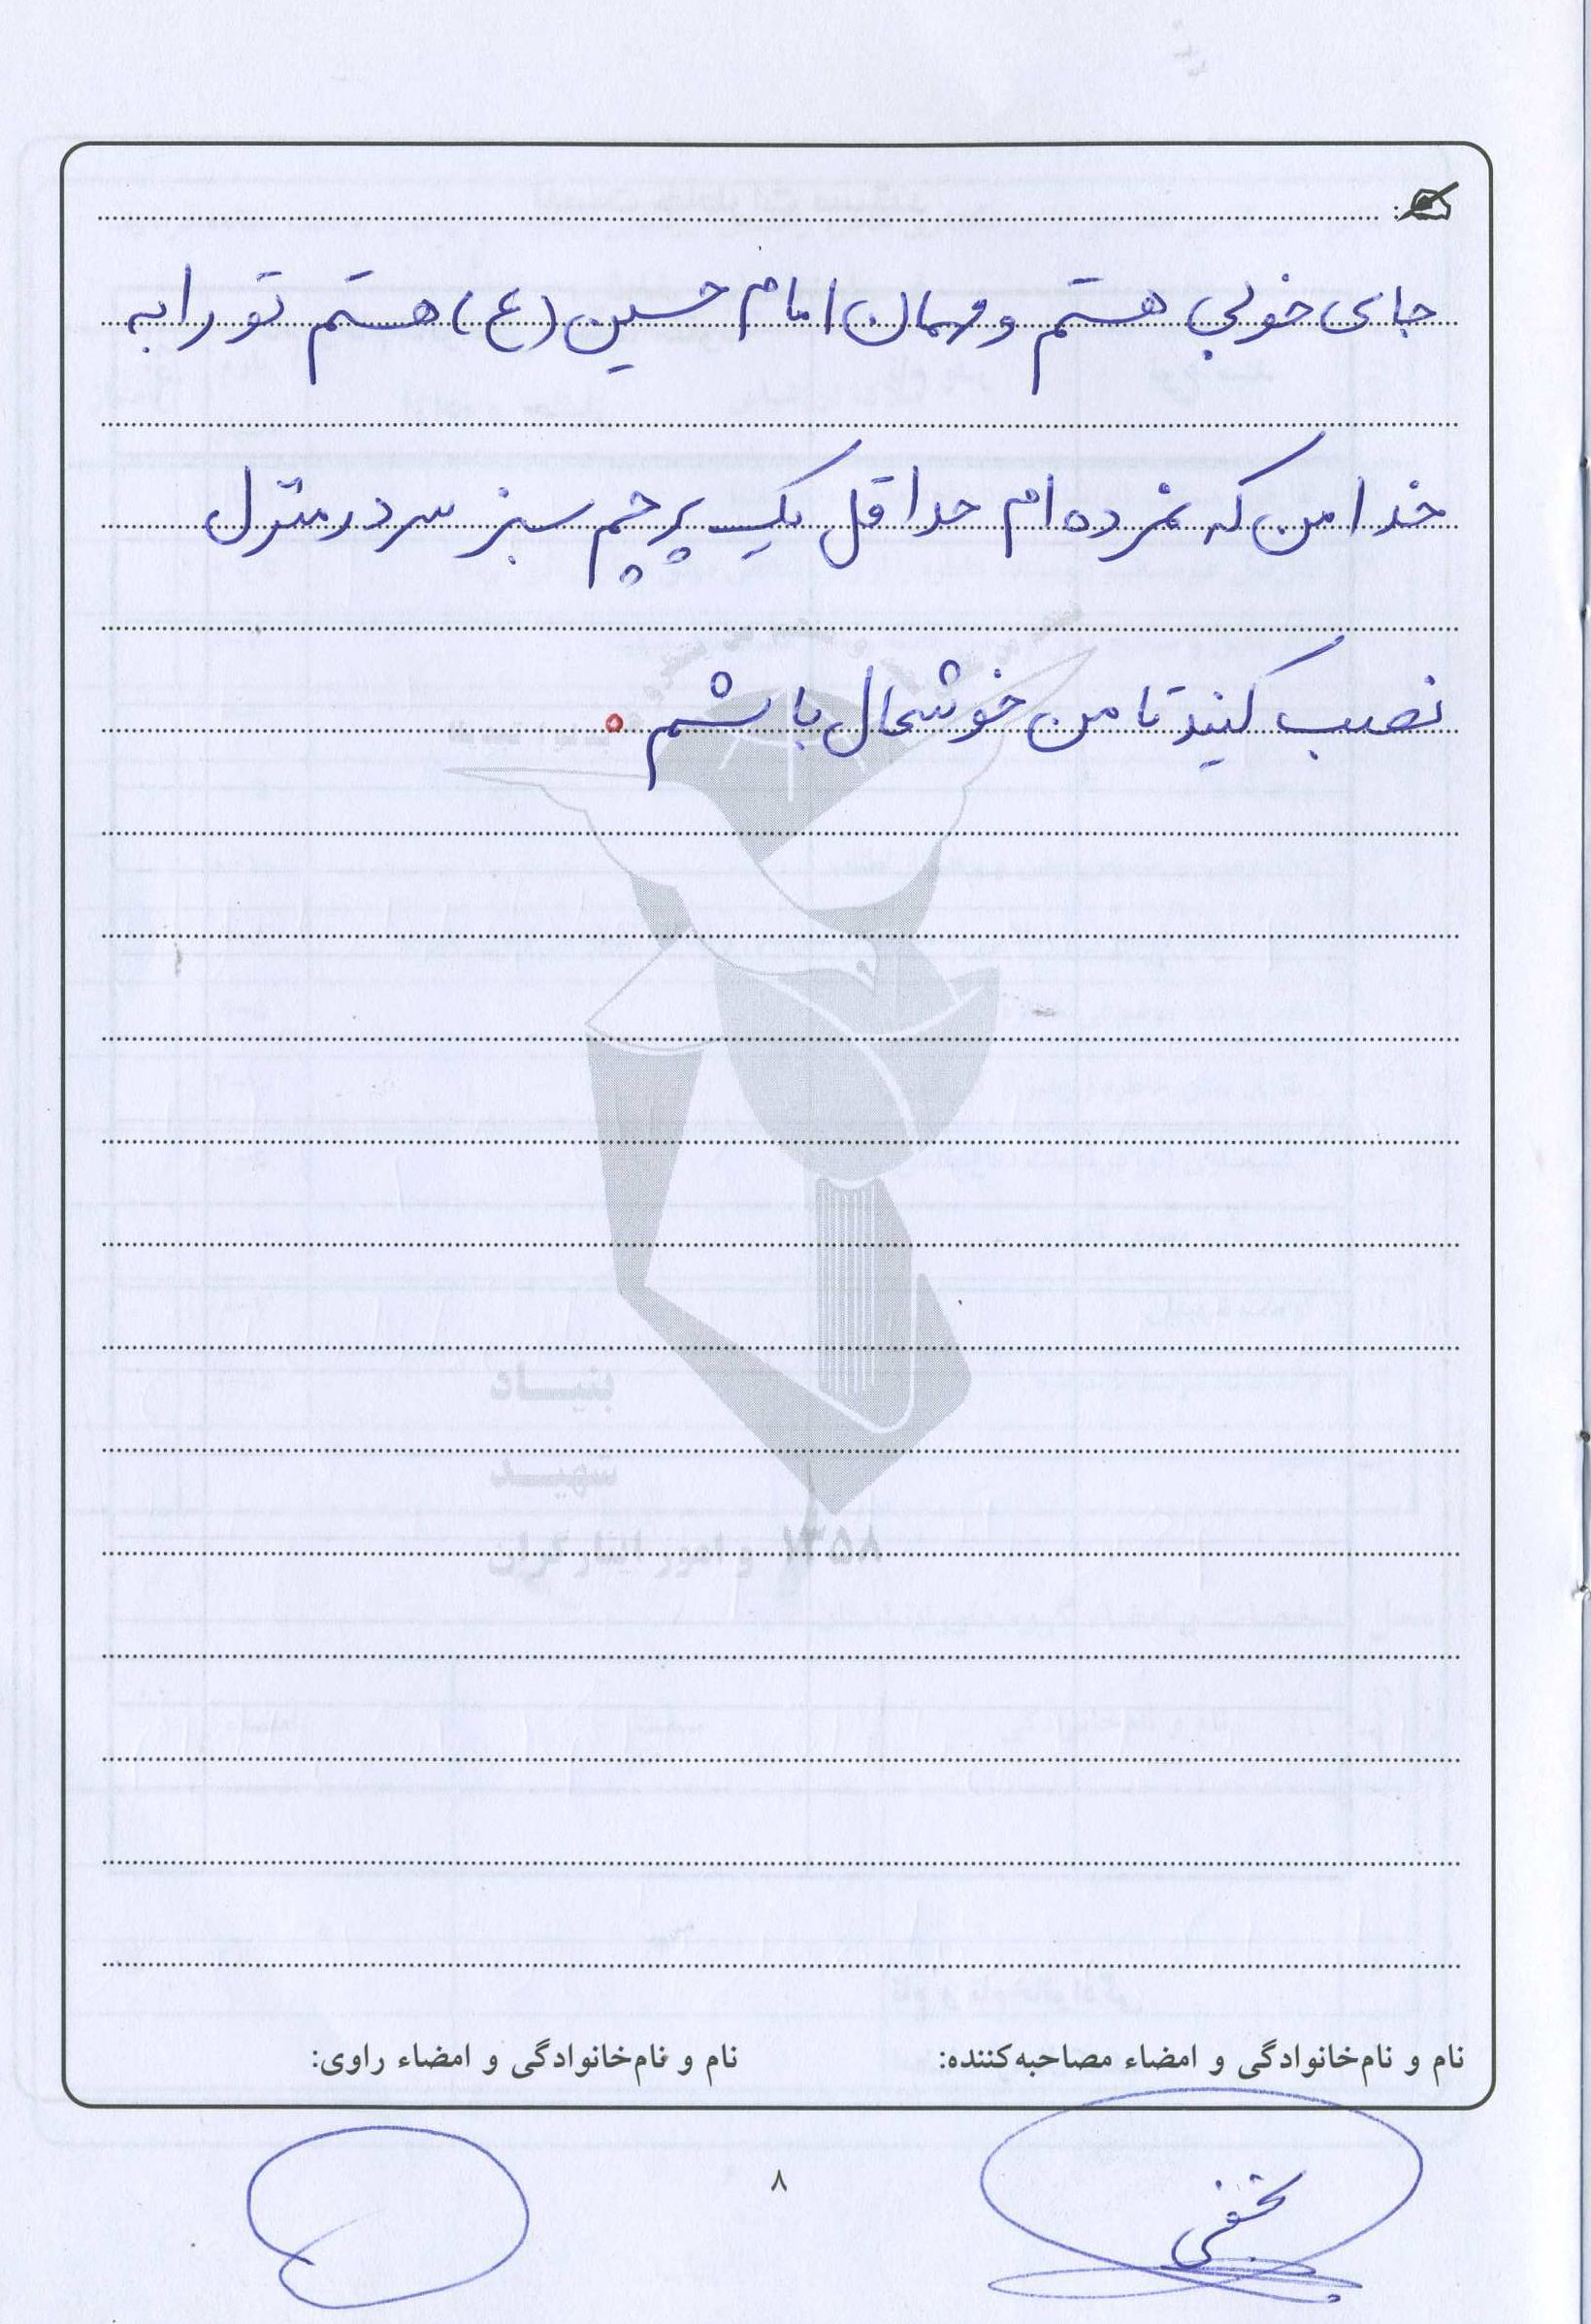 جای خوبی هستم و مهمان امام حسین (ع) هستم تو را به
خدا من که نمرده ام حداقل یک پرچم سبز سر در منزل
نصب کنید تا من خوشحال باشم.
بنیاد
شهید
و امور ایثارگران ۱۳۵۸
نام و نام‌خانوادگی و امضاء مصاحبه‌کننده: نام و نام‌خانوادگی و امضاء راوی:
۸